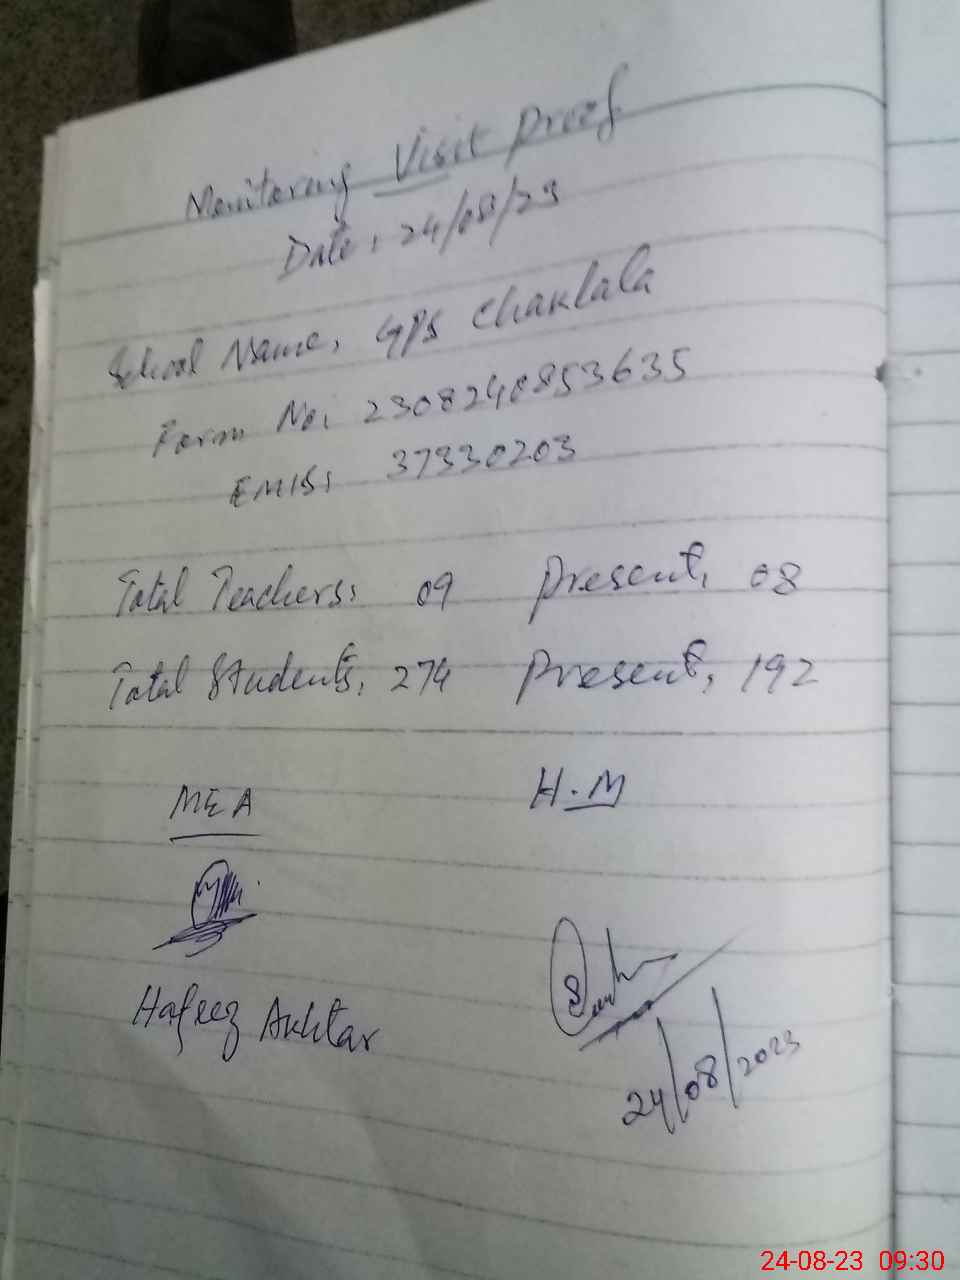 Monitoring Visit Proof
Date: 24/08/23
School Name: GPS Chaklala
Form No: 2308240853635
EMIS: 37330203
Total Teachers: 09 Present: 08
Total Students: 274 Present: 192
MEA H.M
Hafeez Akhtar
24/08/2023
24-08-23 09:30